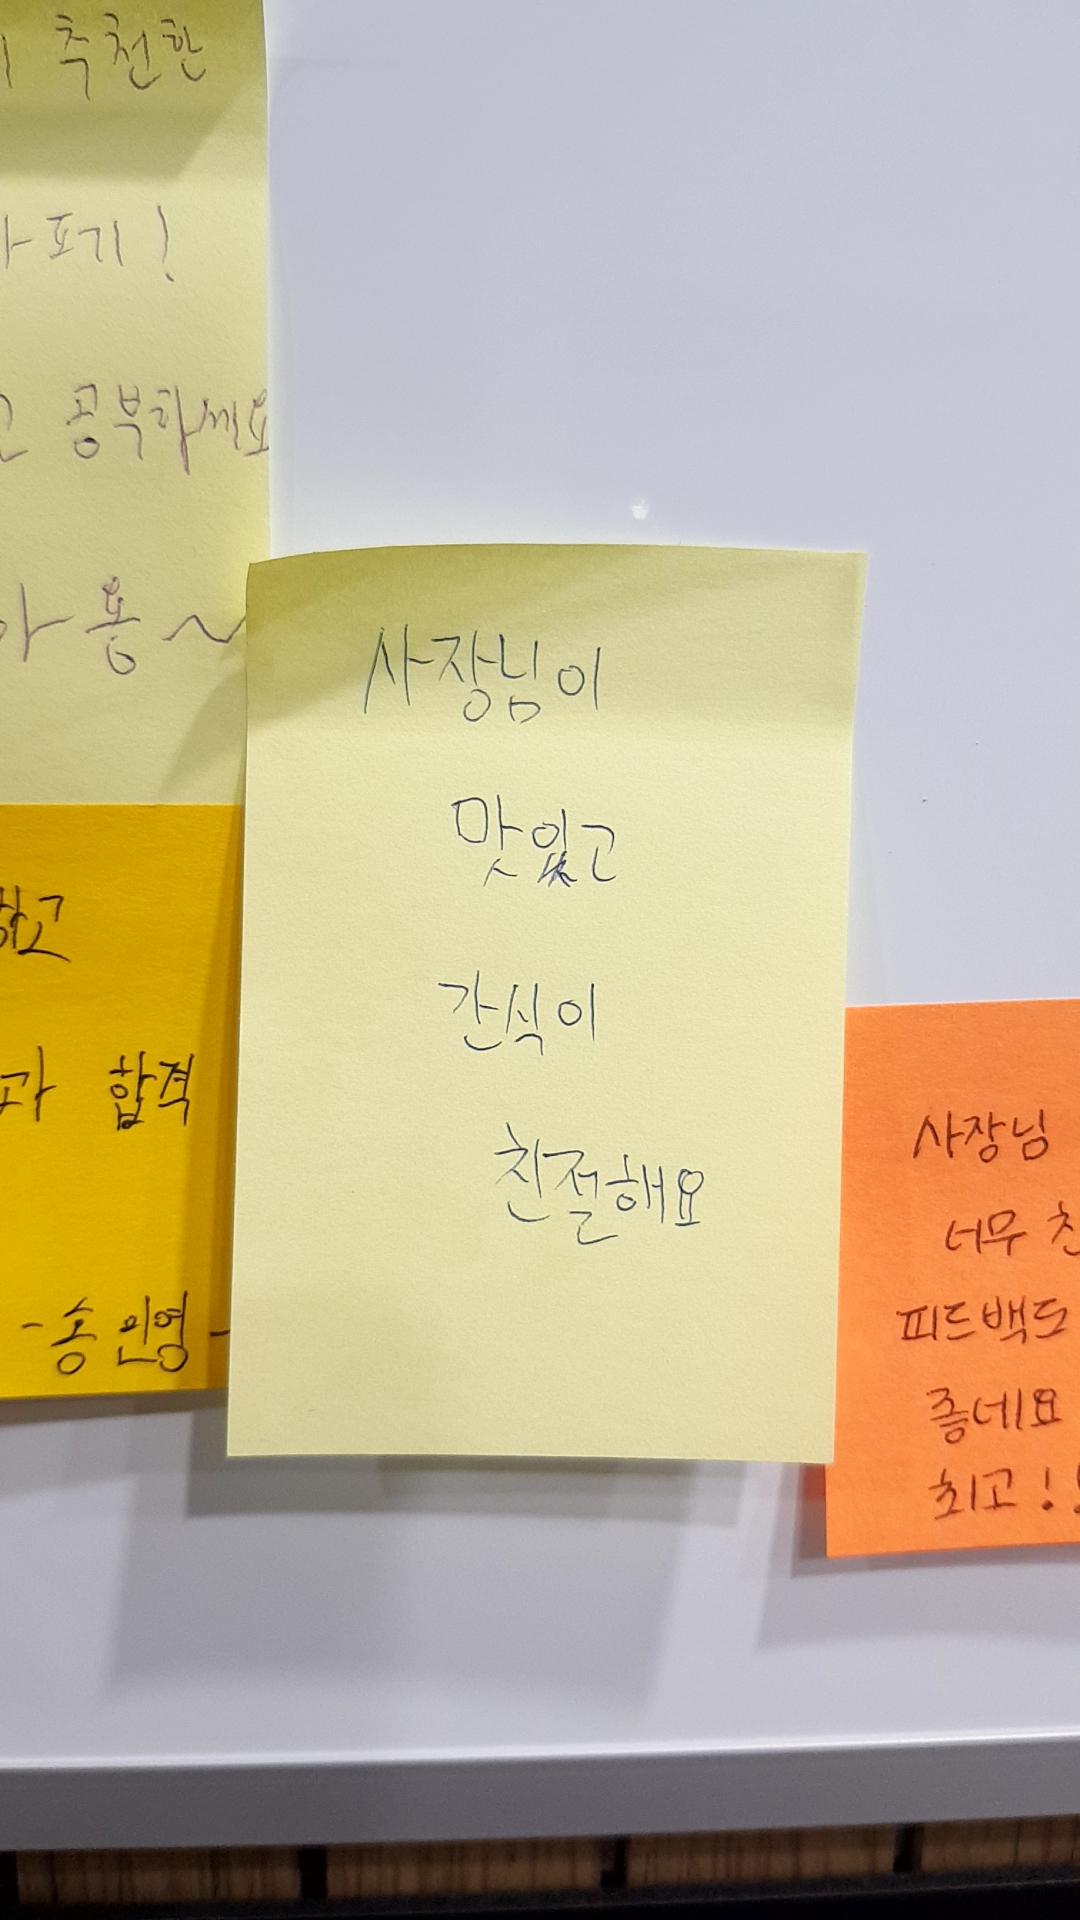 추천한
포기!
공부하세요
아용~
사장님이
맛있고
간식이
친절해요
하고
합격
-송인영-
사장님
너무 친
피드백도
좋네요
최고!!